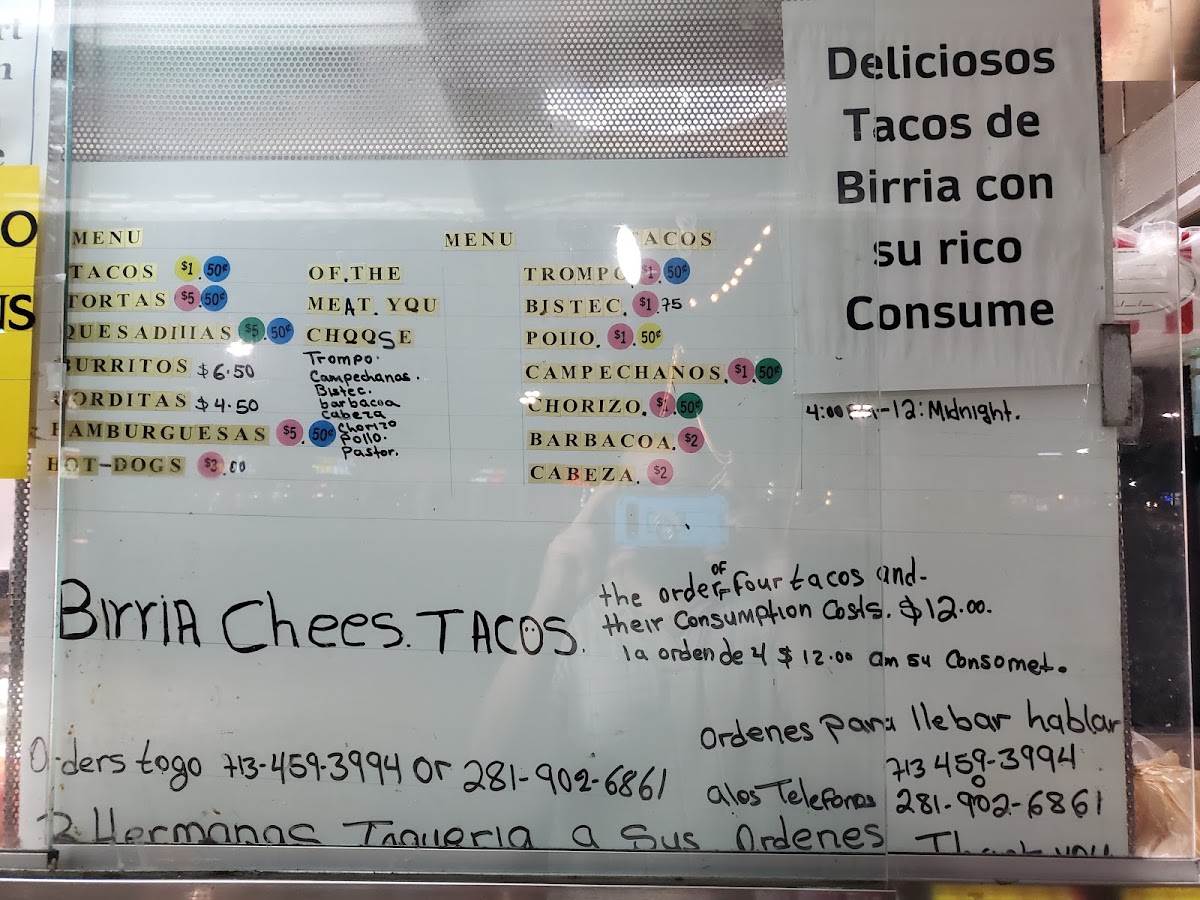 Deliciosos
Tacos de
Birria con
su rico
Consume
4:00 -12:Midnight.
MENU
TACOS $1.50¢
TORTAS $5.50¢
QUESADIIIAS $5.50¢
BURRITOS $6.50
GORDITAS $4.50
HAMBURGUESAS $5.50¢
HOT-DOGS $3.00
OF.THE
MEAT YQU
CHQQSE
Trompo.
Campechanos.
Bistec.
barbacoa
Cabeza
Chorizo
Pollo.
Pastor.
MENU TACOS
TROMPO $1.50¢
BJSTEC. $1.75
POIIO. $1.50¢
CAMPECHANOS. $1.50¢
CHORIZO. $1.50¢
BARBACOA. $2
CABEZA. $2
BIRRIA Chees. TACOS.
the order of four tacos and-
their Consumption Costs. $12.00.
la orden de 4 $12.00 su Consomet.
Orders togo 713-459-3994 or 281-902-6861
Ordenes para llebar hablar
713 459-3994
o
alos Telefonos 281-902-6861
2 Hermanas Taqueria a Sus Ordenes Thank you